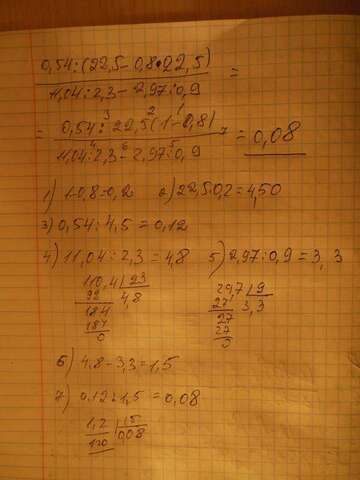 0,54:(22,5-0,8•22,5)
=
11,04:2,3-2,97:0,9
3 2 1
= 0,54:22,5(1-0,8) 7 = 0,08
4 6 5
11,04:2,3-2,97:0,9
1) 1-0,8=0,2 2) 22,5·0,2=4,50
3) 0,54:4,5=0,12
4) 11,04:2,3=4,8 5) 2,97:0,9=3,3
110,4 23 29,7 9
92 4,8 27 3,3
184 27
184 27
0 0
6) 4,8-3,3=1,5
7) 0,12:1,5=0,08
1,2 15
120 0,08